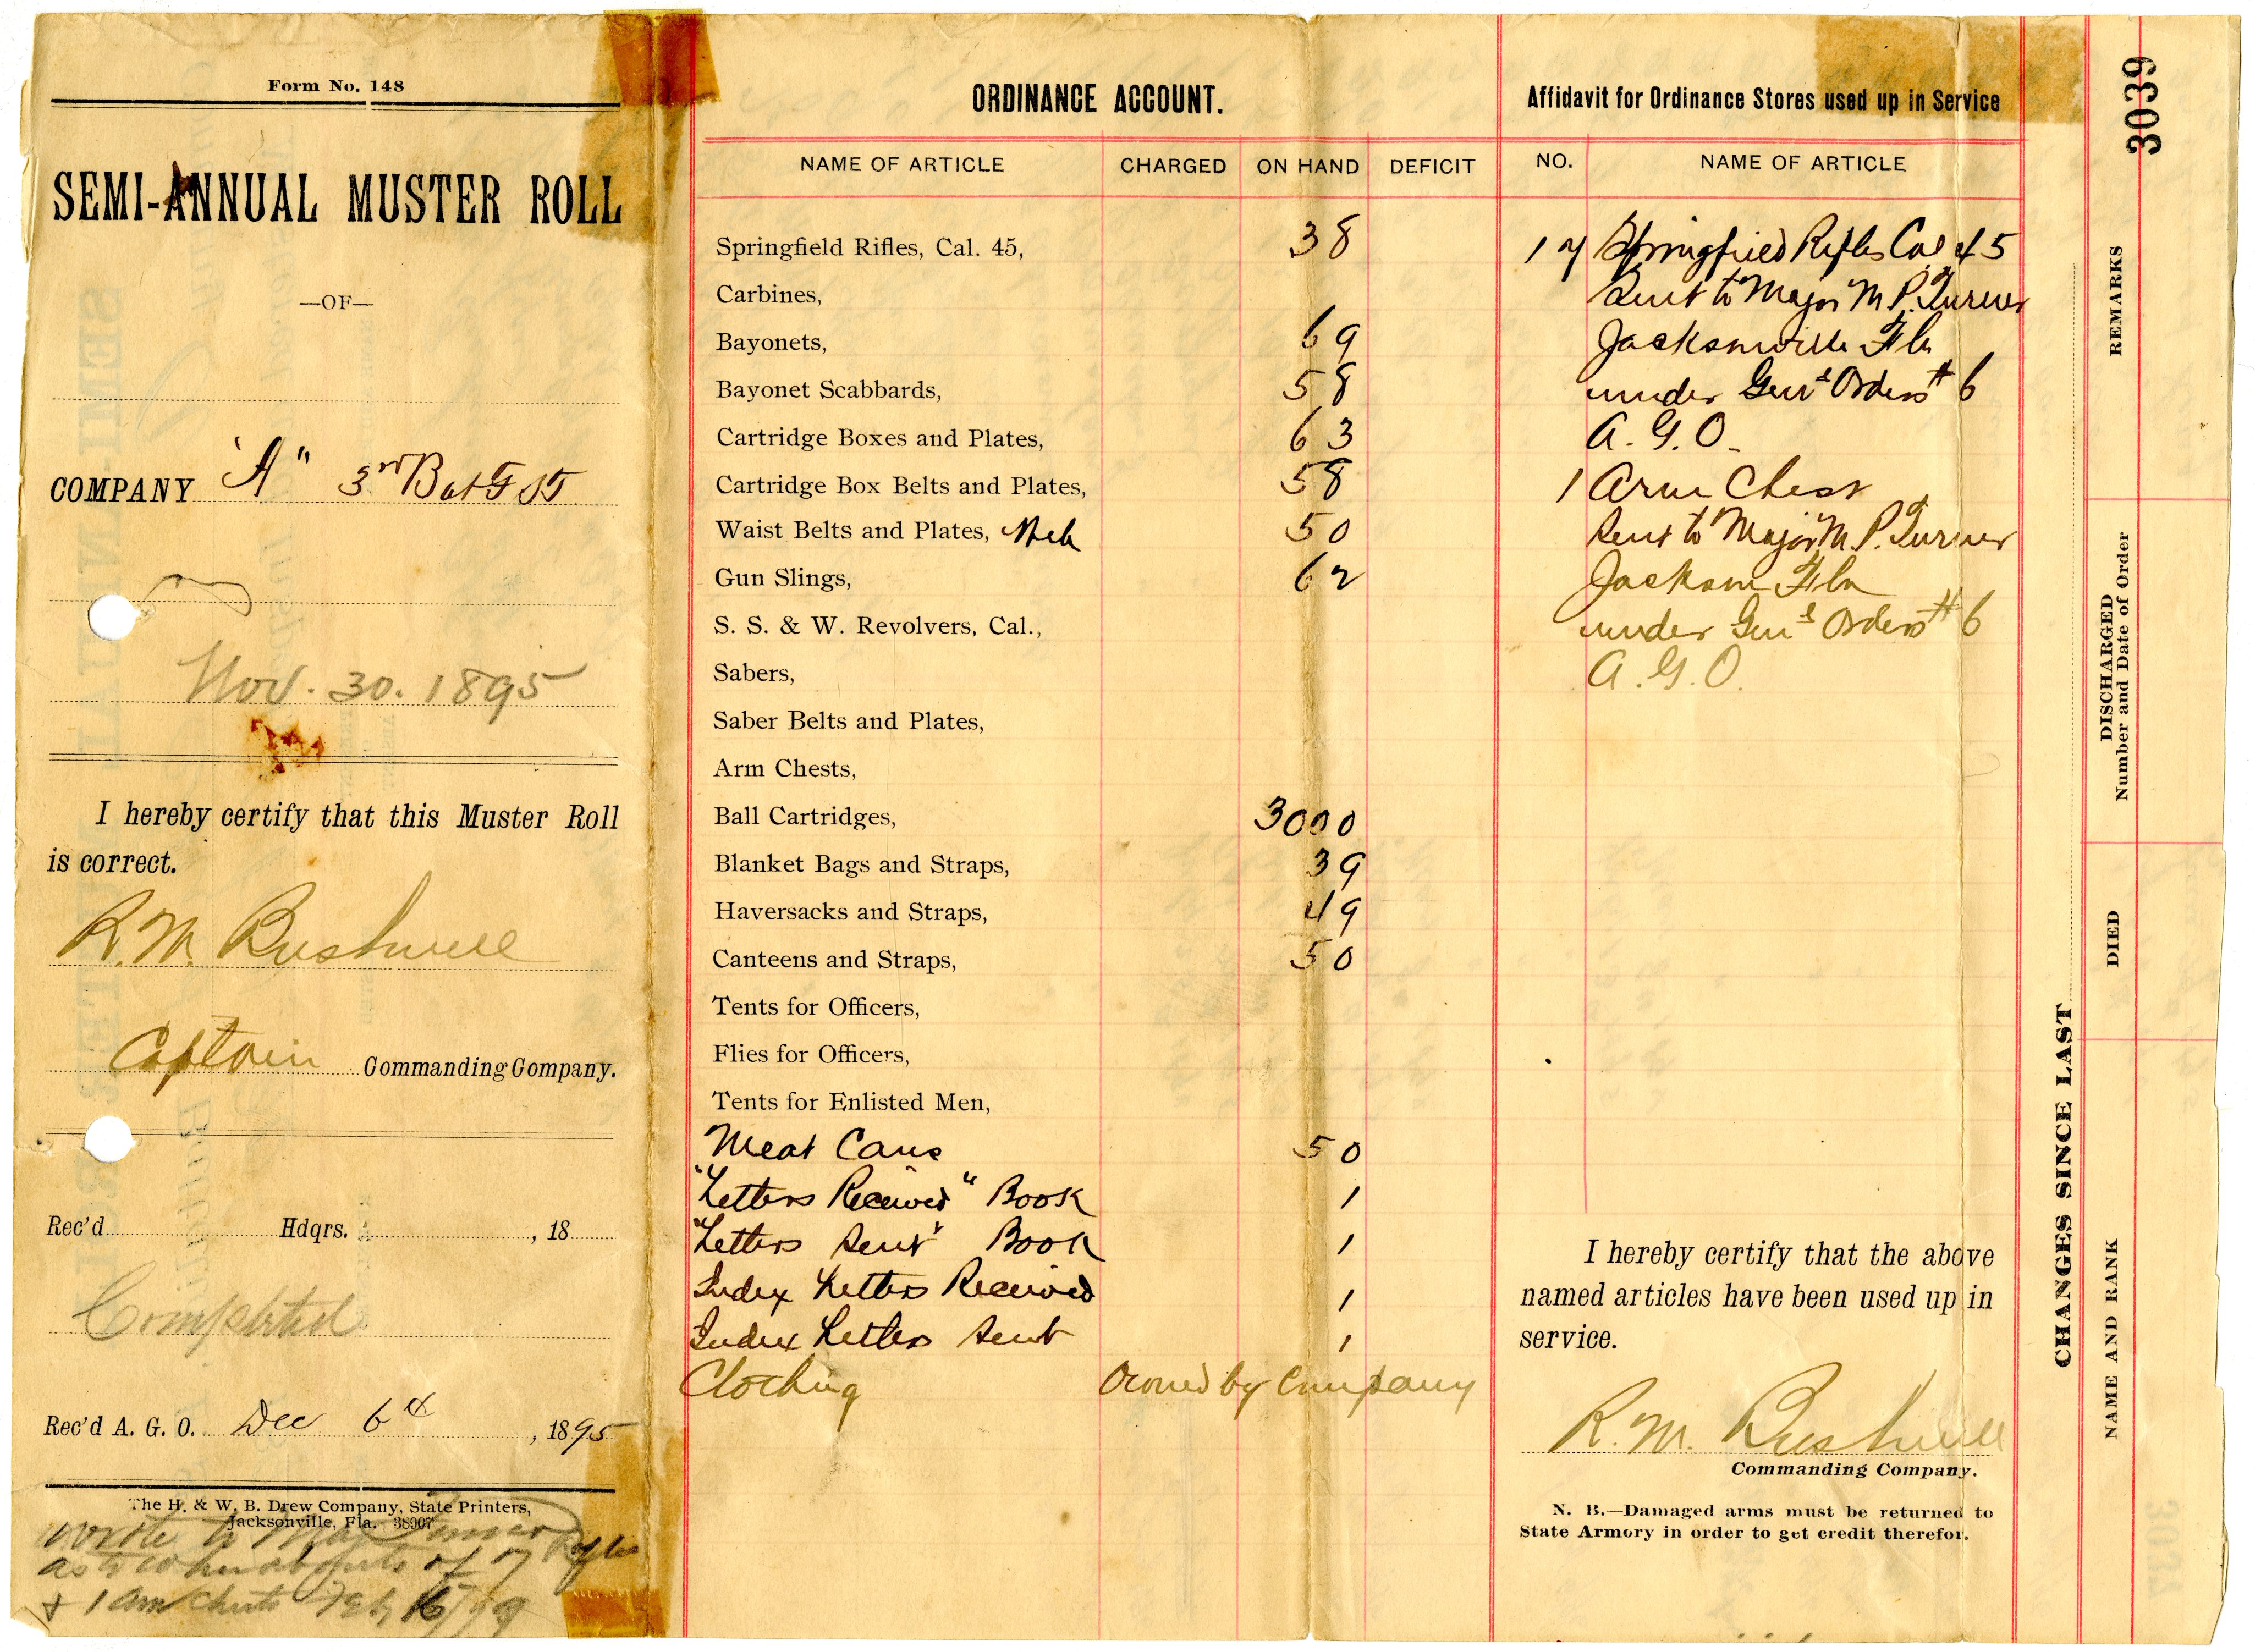 Form No. 148
SEMI-ANNUAL MUSTER ROLL
—OF—
COMPANY "A" 3rd Bat F S T
Nov. 30. 1895
I hereby certify that this Muster Roll
is correct.
R. M. Bushnell
Captain Commanding Company.
Rec'd Hdqrs. , 18
Completed
Rec'd A. G. O. Dec 6th , 1895
The H. & W. B. Drew Company, State Printers,
Jacksonville, Fla. 38907
wrote to Maj Turner
as to whereabouts of 17 Rifles
& 1 arm chests Feb
ORDINANCE ACCOUNT.
NAME OF ARTICLE CHARGED ON HAND DEFICIT
Springfield Rifles, Cal. 45, 38
Carbines,
Bayonets, 69
Bayonet Scabbards, 58
Cartridge Boxes and Plates, 63
Cartridge Box Belts and Plates, 58
Waist Belts and Plates, Web 50
Gun Slings, 62
S. S. & W. Revolvers, Cal.,
Sabers,
Saber Belts and Plates,
Arm Chests,
Ball Cartridges, 3000
Blanket Bags and Straps, 39
Haversacks and Straps, 49
Canteens and Straps, 50
Tents for Officers,
Flies for Officers,
Tents for Enlisted Men,
Meat Cans 50
"Letters Received" Book 1
"Letters Sent" Book 1
Index Letters Received 1
Index Letters Sent 1
Clothing Owned by Company
Affidavit for Ordinance Stores used up in Service
NO. NAME OF ARTICLE
17 Springfield Rifles Cal 45
Sent to Major M. P. Turner
Jacksonville Fla
under Genl Orders # 6
A. G. O.
1 Arm Chest
Sent to Major M. P. Turner
Jackson Fla
under Genl Orders # 6
A. G. O.
I hereby certify that the above
named articles have been used up in
service.
R. M. Bushnell
Commanding Company.
N. B.—Damaged arms must be returned to
State Armory in order to get credit therefor.
CHANGES SINCE LAST
NAME AND RANK
DIED
DISCHARGED
Number and Date of Order
REMARKS
3039